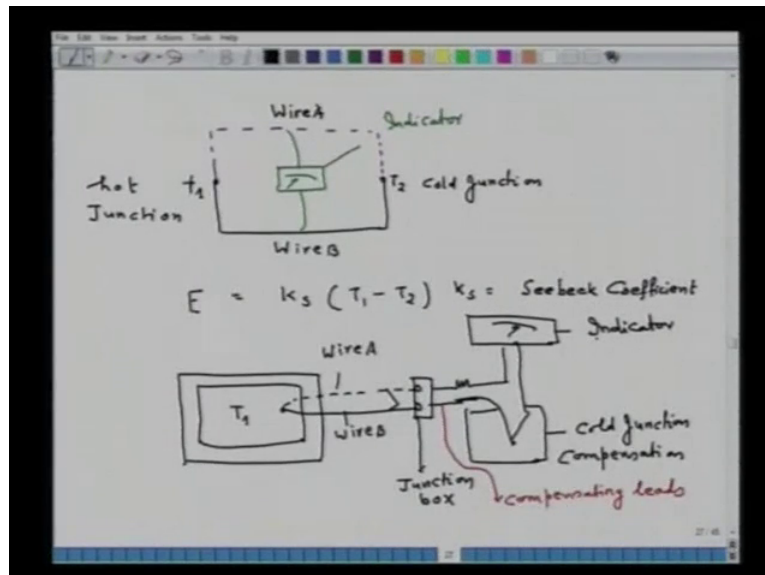 File Edit View Insert Actions Tools Help
B I
Wire A
Indicator
hot t1 T2 Cold Junction
Junction
Wire B
E = Ks (T1 - T2) Ks = Seebeck Coefficient
Indicator
Wire A
T1
Wire B
Cold Junction
Compensation
Junction
box
compensating leads
27